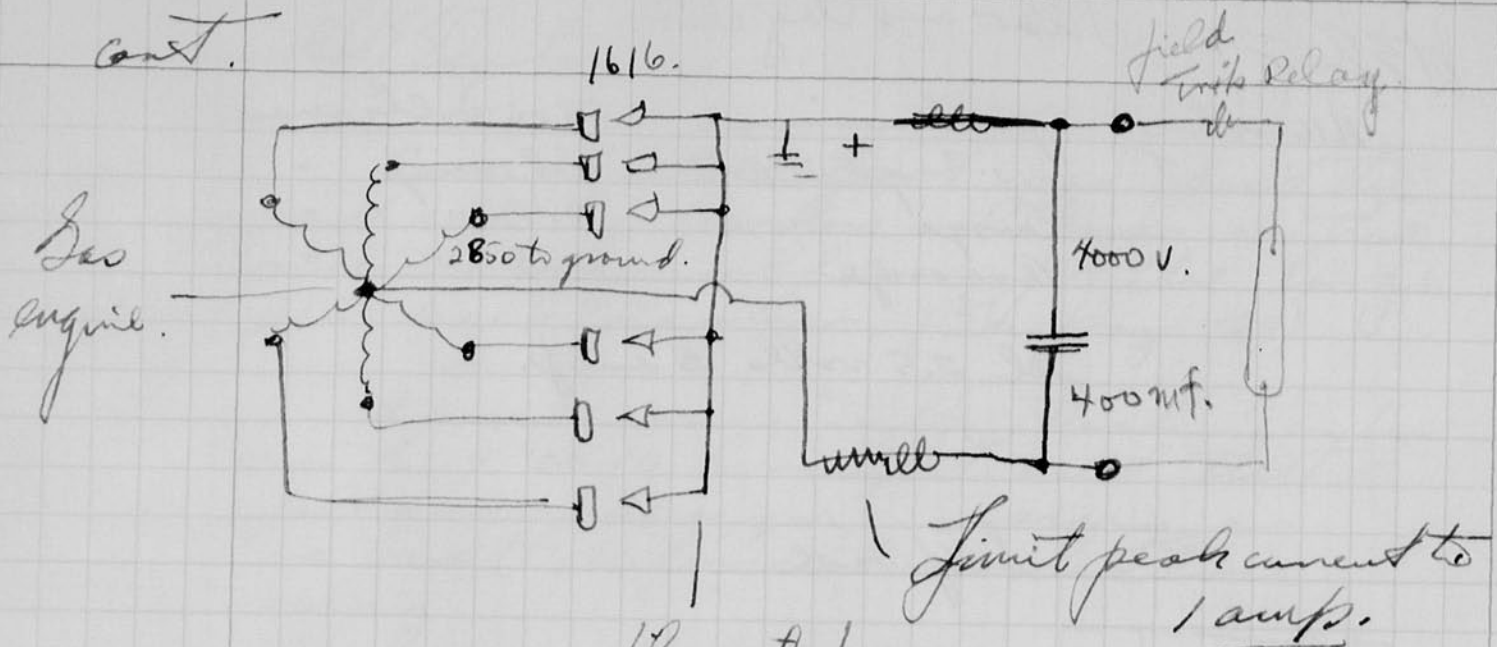 cont.
1616.
field
Relay
+
Gas
engine.
2850 to ground.
4000 v.
400 mf.
Limit peak current to
1 amp.